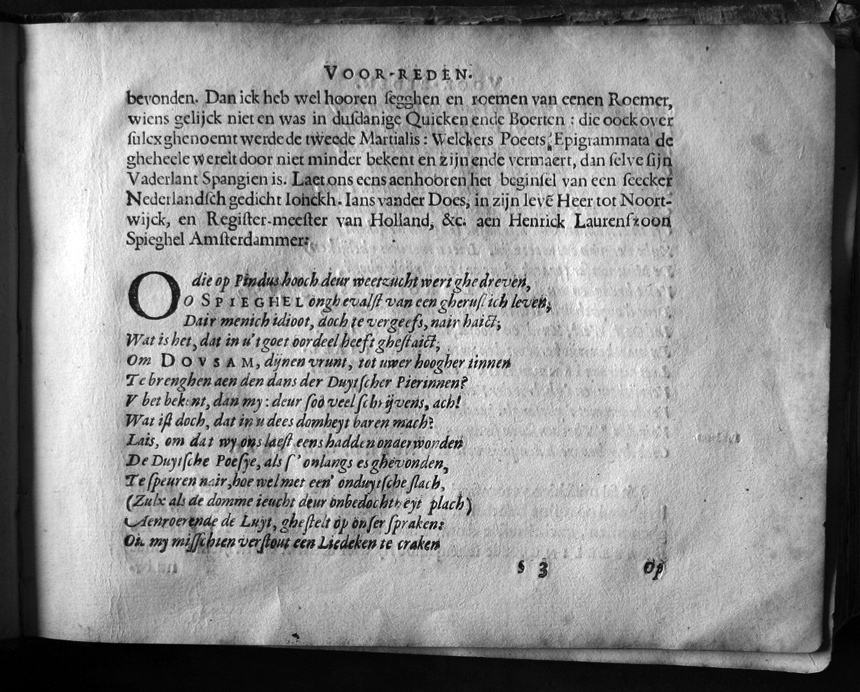 VOOR-REDEN.
bevonden. Dan ick heb wel hooren segghen en roemen van eenen Roemer,
wiens gelijck niet en was in dusdanige Quicken ende Boerten : die oock over
sulcx ghenoemt werde de tweede Martialis : Welckers Poeets, Epigrammata de
gheheele werelt door niet minder bekent en zijn ende vermaert, dan selve sijn
Vaderlant Spangien is. Laet ons eens aenhooren het beginsel van een seecker
Nederlandsch gedicht Ionckh. Ians vander Does, in zijn levē Heer tot Noort-
wijck, en Register-meester van Holland, &c. aen Henrick Laurenszoon
Spieghel Amsterdammer:
O die op Pindus hooch deur weetzucht wert ghedreven,
O SPIEGHEL onghevalst van een gheruslich leven,
Dair menich idioot, doch te vergeefs, nair haict;
Wat is het, dat in u't goet oordeel heeft ghestaict;
Om DOVSAM, dijnen vrunt, tot uwer hoogher tinnen
Te brenghen aen den dans der Duytscher Pierinnen?
V bet bekent, dan my : deur soo veel schrijvens, ach!
Wat ist doch, dat in u dees domheyt baren mach?
Lais, om dat wy ons laest eens hadden onderwonden
De Duytsche Poesye, als s'onlangs es ghevonden,
Te speuren nair, hoe wel met een' onduytsche slach,
(Zulx als de domme ieucht deur onbedochtheyt plach)
Aenroerende de Luyt, ghestelt op onser spraken:
On my misschien verstout een Liedeken te craken
§ 3 Op